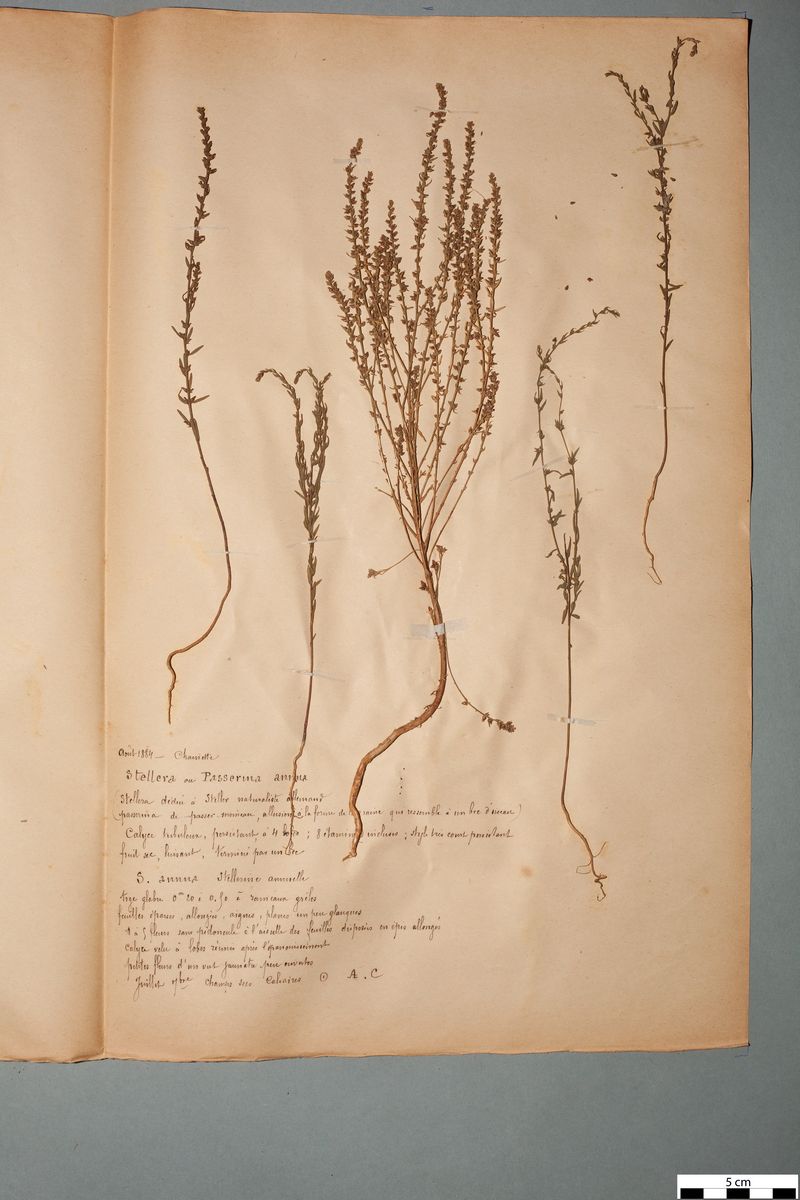 Août 1884 — Charrette
Stellera ou Passerina annua
Stellera dédié à Steller naturaliste allemand
(passerina de passer moineau, allusion à la forme de la graine qui ressemble à un bec d'oiseau)
Calyce tubuleux, persistant, à 4 lobes ; 8 étamines incluses ; style très court persistant
fruit sec, luisant, terminé par un bec
S. annua Stellerine annuelle
tige glabre 0m 20 à 0.50 à rameaux grêles
feuilles éparses, allongées, aigues, planes un peu glauques
1 à 5 fleurs sans pédoncule à l'aisselle des feuilles disposées en épis allongés
calyce velu à lobes réunis après l'épanouissement
petites fleurs d'un vert jaunâtre peu ouvertes
Juillet 7bre champs secs Calcaires ⊙ A.C
5 cm